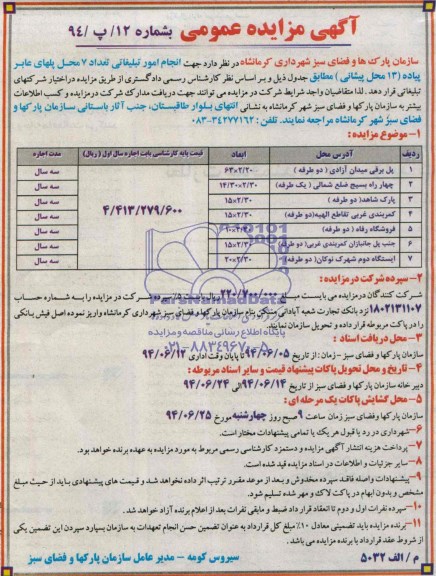 آگهی مزایده عمومی بشماره ۱۲/پ/۹۴
سازمان پارک ها و فضای سبز شهرداری کرمانشاه در نظر دارد جهت انجام امور تبلیغاتی تعداد ۷ محل پلهای عابر
پیاده (۱۳ محل پیشانی) مطابق جدول ذیل و بر اساس نظر کارشناس رسمی دادگستری از طریق مزایده دراختیار شرکتهای
تبلیغاتی قرار دهد . لذا متقاضیان واجد شرایط شرکت در مزایده می توانند جهت دریافت مدارک شرکت درمزایده و کسب اطلاعات
بیشتر به سازمان پارکها و فضای سبز شهر کرمانشاه به نشانی انتهای بلوار طاقبستان، جنب آثار باستانی سازمان پارکها و
فضای سبز شهر کرمانشاه مراجعه نمایند. تلفن : ۳۴۲۷۷۱۶۲-۰۸۳
۱-موضوع مزایده :
ردیف آدرس محل ابعاد قیمت پایه کارشناسی بابت اجاره سال اول (ریال) مدت اجاره
۱ پل برقی میدان آزادی (دو طرفه) ۲/۲۰×۶۳ سه سال
۲ چهار راه بسیج ضلع شمالی (یک طرفه) ۲/۳۰×۱۴/۳۰ سه سال
۳ پارک شاهد (دو طرفه) ۲/۳۰×۱۵ سه سال
۴ کمربندی غربی تقاطع الهیه(دو طرفه) ۲/۳۰×۱۵ ۴/۴۱۳/۲۷۹/۶۰۰ سه سال
۵ فروشگاه رفاه (دو طرفه) سه سال
۶ جنب پل جانبازان کمربندی غربی(دو طرفه) ۲/۳۰×۱۵ سه سال
۷ ایستگاه دوم شهرک نوکان(دو طرفه) ۲/۳۰×۲۰ سه سال
۲-سپرده شرکت درمزایده :
شرکت کنندگان درمزایده می بایست مبلغ ۲۲۰/۷۰۰/۰۰۰ ریال بابت ۵٪ سپرده شرکت در مزایده را به شماره حساب
۱۸۰۲۱۳۱۱۰۷ نزد بانک تجارت شعبه آبادانی مسکن بنام سازمان پارکها و فضای سبز شهرداری کرمانشاه واریز نموده اصل فیش بانکی
را در پاکت مربوطه قرار داده و تحویل سازمان نمایند.
۳-محل دریافت اسناد :
سازمان پارکها و فضای سبز - زمان : از تاریخ ۹۴/۰۶/۰۵ تا پایان وقت اداری ۹۴/۰۶/۱۲
۴-تاریخ و محل تحویل پاکات پیشنهاد قیمت و سایر اسناد مربوطه :
دبیر خانه سازمان پارکها و فضای سبز از تاریخ ۹۴/۰۶/۱۴ الی ۹۴/۰۶/۲۴
۵-محل گشایش پاکات یک مرحله ای :
سازمان پارکها و فضای سبز زمان ساعت ۹ صبح روز چهارشنبه مورخ ۹۴/۰۶/۲۵
۶-شهرداری در رد یا قبول هر یک یا تمامی پیشنهادات مختار است.
۷-پرداخت هزینه انتشار آگهی مزایده و دستمزد کارشناسی رسمی مربوط به مورد مزایده به عهده برنده خواهد بود.
۸-سایر جزئیات و اطلاعات در اسناد مزایده قید شده است.
۹-پیشنهادات واصله فاقد سپرده مخدوش و بعد از موعد مقرر ترتیب اثر داده نخواهد شد و قیمت های پیشنهادی باید از حیث مبلغ
مشخص و بدون ابهام در پاکت لاک و مهر شده تسلیم شود.
۱۰-سپرده نفرات اول و دوم تا انعقاد قرار داد ضبط و مابقی نفرات بعد از اعلام برنده آزاد خواهد شد.
۱۱-برنده مزایده باید تضمینی معادل ۱۰٪ مبلغ کل قرارداد به عنوان تضمین حسن انجام تعهدات به سازمان بسپارد سپردن این تضمین یکی
از شروط عقد قرارداد با برنده مزایده می باشد.
م / الف ۵۰۳۲ سیروس کومه - مدیر عامل سازمان پارکها و فضای سبز
ParsNamadData
پایگاه اطلاع رسانی مناقصه و مزایده
۰۲۱-۸۸۳۴۹۶۷۰-۵